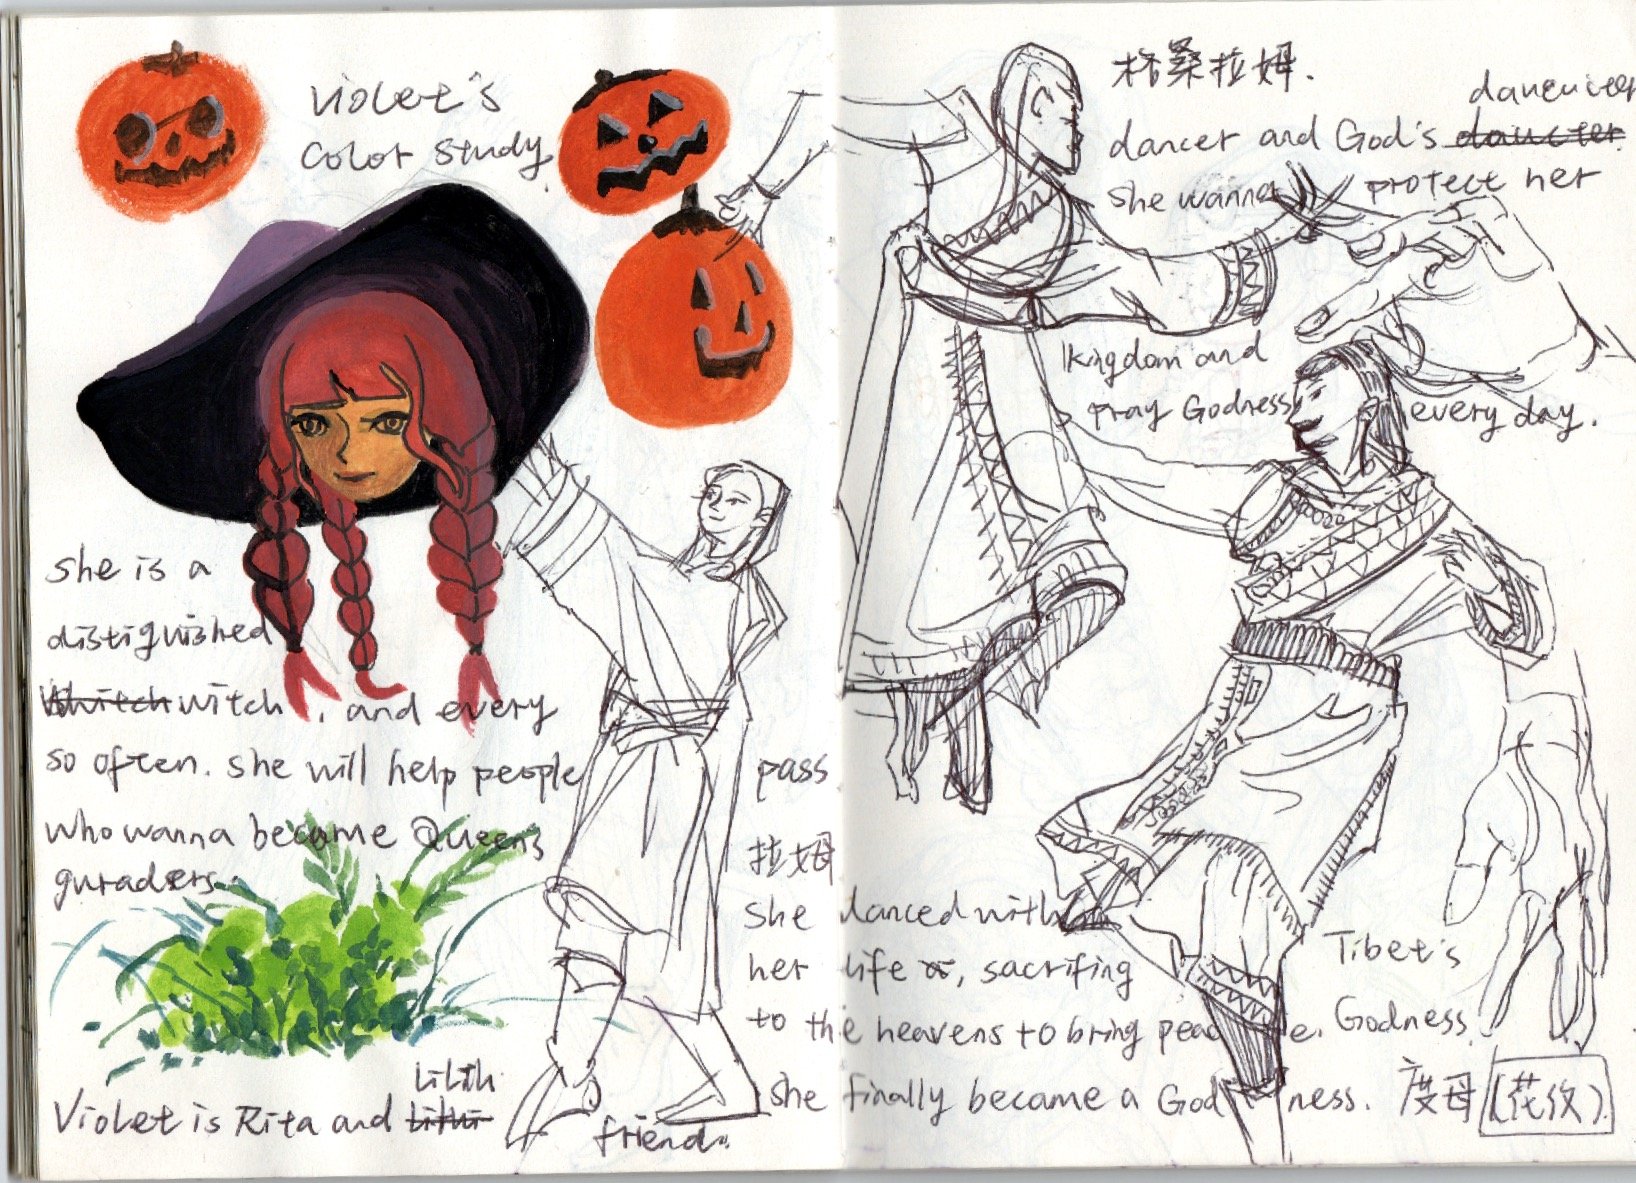 Violet's
Color Study.
she is a
distinguished
Whitch witch, and every
so often. she will help people
who wanna became Queen's
guraders.
Violet is Rita and Lilith
friend.
格桑拉姆.
dancer and God's
she wanna protect her
kingdom and
pray Godness every day.
pass
拉姆
she danced with
her life, sacrifing
to the heavens to bring peace.
she finally became a Godness.
Tibet's
Godness.
度母